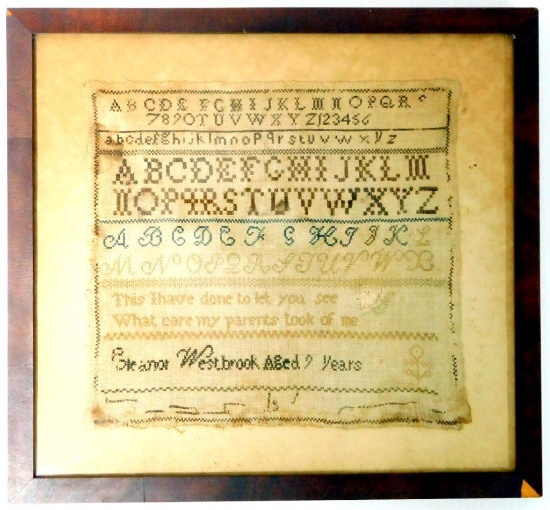 A B C D E F G H I J K L M N O P Q R S
7 8 9 0 T U V W X Y Z 1 2 3 4 5 6
a b c d e f g h i j k l m n o p q r s t u v w x y z
A B C D E F G H I J K L M
N O P Q R S T U V W X Y Z
A B C D E F G H I J K L
M N O P Q R S T U V W X
This I have done to let you see
What care my parents took of me
Eleanor Westbrook Aged 9 Years